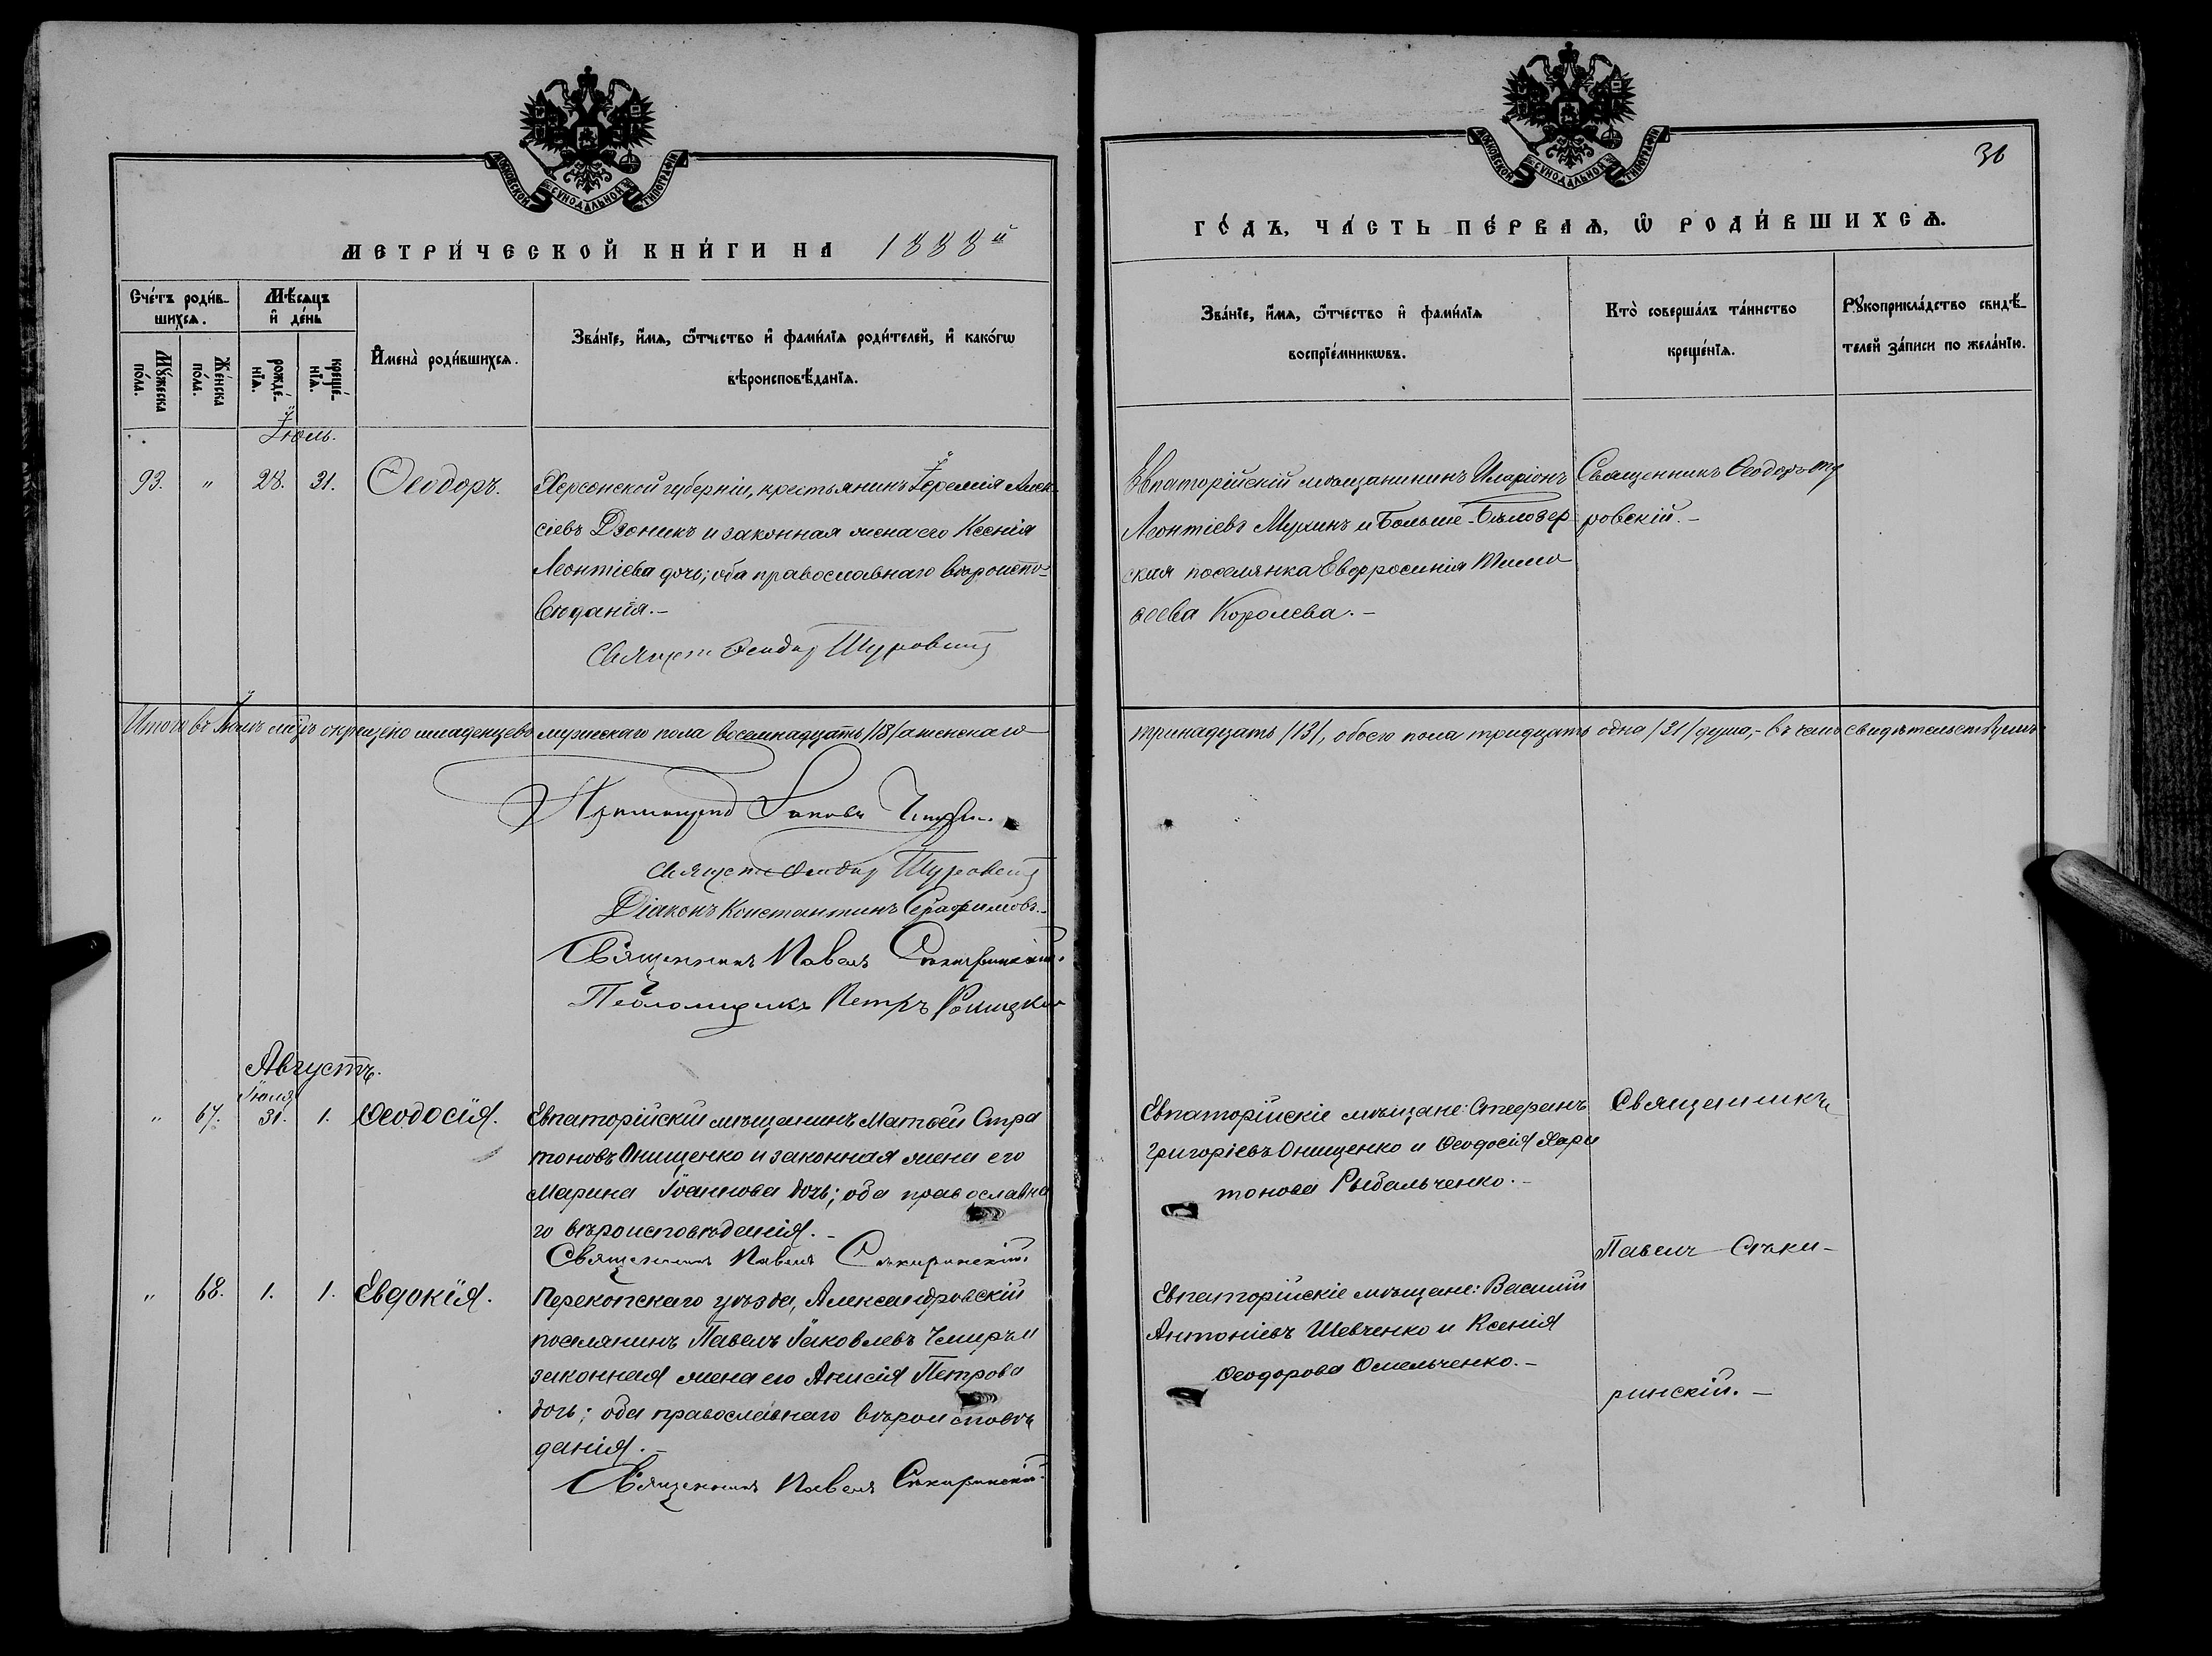 МОСКОВСКОЙ СѴНОДАЛЬНОЙ ТИПОГРАФІИ
МЕТРИ́ЧЕСКОЙ КНИ́ГИ НА 1888й
Сче́тъ роди́в-
шихсѧ.
Мѣ́сѧцъ
и҆ де́нь
Мꙋ́жеска
по́ла.
Же́нска
по́ла.
рожде́-
нїѧ.
креще́-
нїѧ.
И҆мена̀ роди́вшихсѧ.
Зва́нїе, и҆́мѧ, ѻ҆́тчество и҆ фами́лїѧ роди́телей, и҆ како́гѡ
вѣроисповѣ́данїѧ.
Іюль.
93. " 28. 31. Ѳеодоръ.
Херсонской губерніи, крестьянинъ Іеремія Алек-
сіевъ Дзюникъ и законная жена его Ксенія
Леонтіева дочь; оба православнаго вѣроиспо-
вѣданія.-
Священ Ѳеодор Щуровскій
Итого въ Іюлѣ мѣс. окрещено младенцевъ мужескаго пола восемнадцать /18/ а женскаго
Протоіерей Іаковъ
Священ Ѳеодор Щуровскій
Діаконъ Константинъ Серафимовъ.
Священникъ Павелъ Сѣкиринскій.
Псаломщикъ Петръ
Августъ.
Іюля
" 67. 31. 1. Ѳеодосія.
Евпаторійскій мѣщанинъ Матѳей Стра
тоновъ Онищенко и законная жена его
Марина Іоаннова дочь; оба православна
го вѣроисповѣданія. -
Священникъ Павелъ Сѣкиринскій.
" 68. 1. 1. Евдокія.
Перекопскаго уѣзда, Александровскій
поселянинъ Павелъ Іаковлевъ Чмиръ и
законная жена его Анисія Петрова
дочь; оба православнаго вѣроисповѣ
данія. -
Священникъ Павелъ Сѣкиринскій.
МОСКОВСКОЙ СѴНОДАЛЬНОЙ ТИПОГРАФІИ
36
ГО́ДЪ, ЧА́СТЬ ПЕ́РВАѦ, Ѡ҆ РОДИ́ВШИХСѦ.
Зва́нїе, и҆́мѧ, ѻ҆́тчество и҆ фами́лїѧ
воспрїе́мникѡвъ.
Кто̀ соверша́лъ та́инство
креще́нїѧ.
Рꙋкоприкла́дство свидѣ́-
телей за́писи по жела́нїю.
Евпаторійскій мѣщанинъ Иларіонъ
Леонтіевъ Мухинъ и Больше-Бѣлозер-
ская поселянка Евфросинія Тимо
ѳеева Королева.-
Священникъ Ѳеодоръ Щу
ровскій.-
тринадцать /13/, обоего пола тридцать одна /31/ душа,- въ чемъ свидѣтельствуемъ
Евпаторійскіе мѣщане: Стефанъ
Григоріевъ Онищенко и Ѳеодосія Хари
тонова Рыбальченко.-
Священникъ
Павелъ Сѣки-
Евпаторійскіе мѣщане: Василій
Антоніевъ Шевченко и Ксенія
Ѳеодорова Омельченко.-
ринскій. -